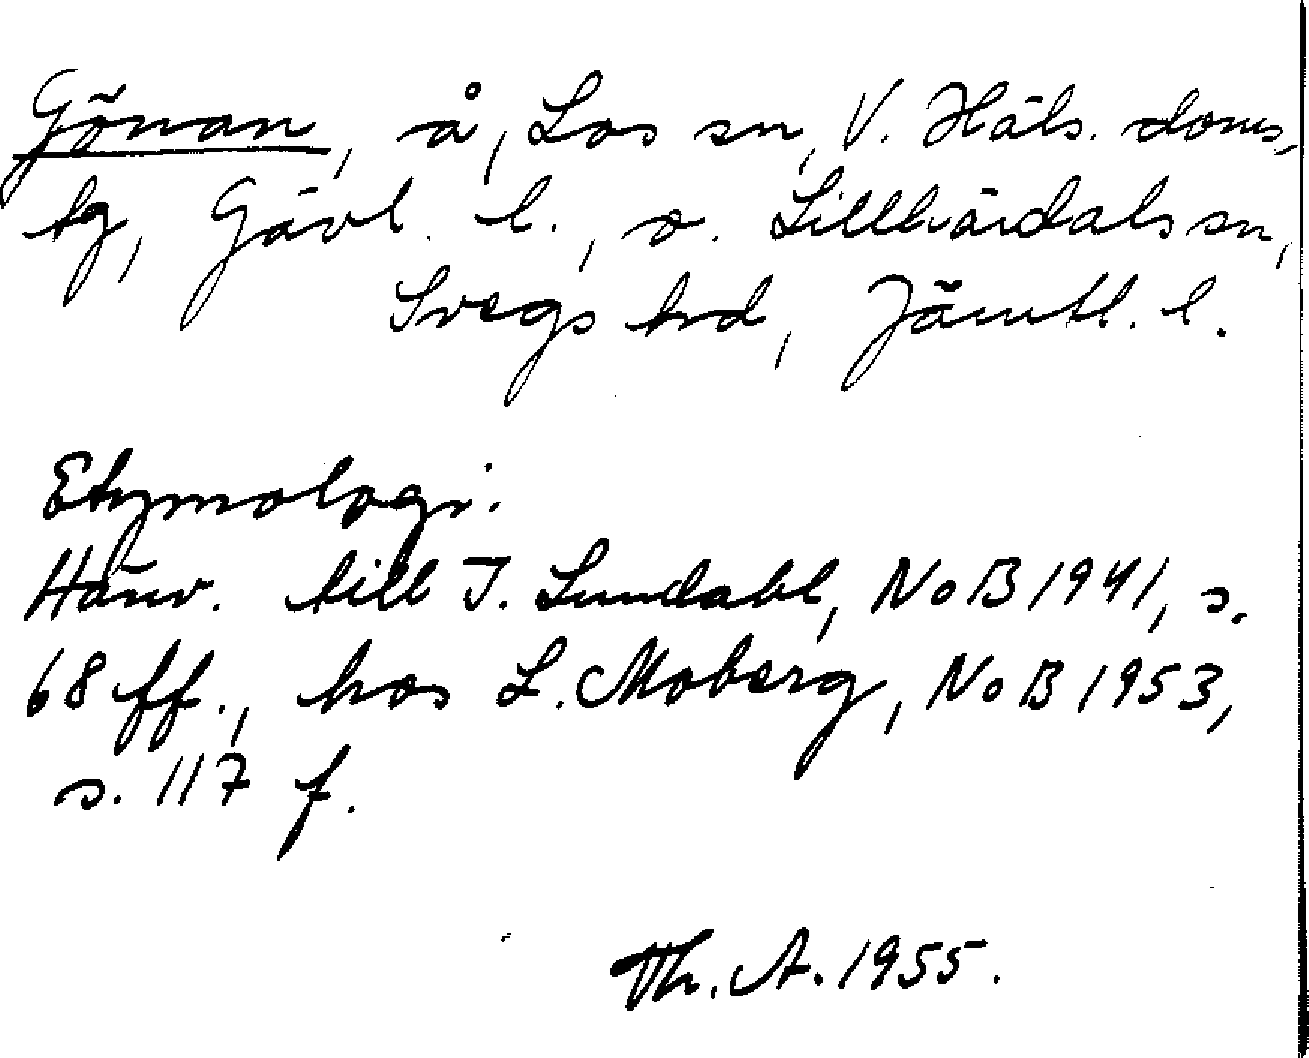 Gönan, å, Los sn, V. Häls. doms-
tg, Gävl. l., o. Lillhärdals sn,
Svegs hd, Jämtl. l.
Etymologi.
Hänv. till I. Lundahl, NoB 1941, s.
68 ff., hos L. Moberg, NoB 1953,
s. 117 f.
Th. A. 1955.